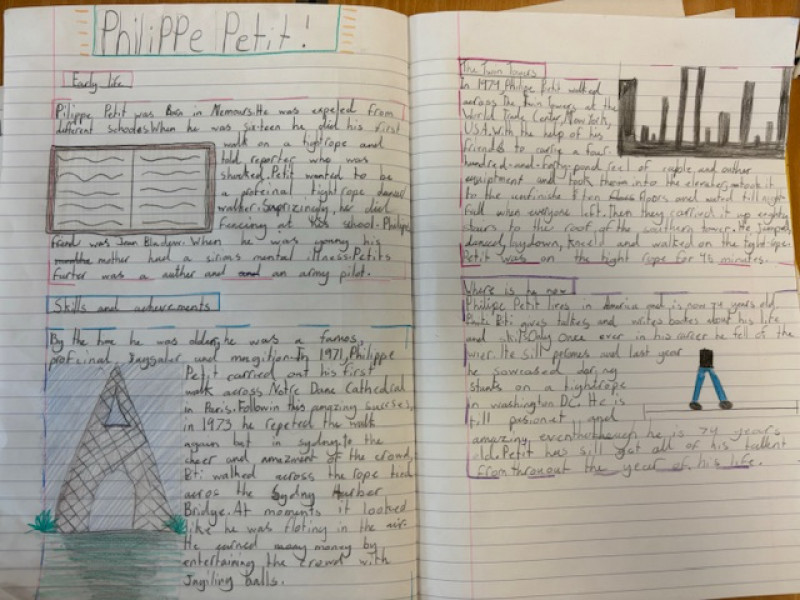 Philippe Petit!
Early life
Pilippe Petit was Born in Nemours. He was expeled from
different schooles. When he was six-teen he did his first
walk on a tightrope and
told reporter who was
shocked. Petit wanted to be
a profeinal tightrope
walker. Suprizingly, he did
fencing at his school. Philippe
friend was Jean
When he was young his
mother had a sirius mental illness. Petits
was a auther and an army pilot.
Skills and acheivements
By the time he was older, he was a famos,
and In 1971, Philippe
Petit carried out his first
walk across Notre Dane Cathedral
in Paris. Followin this amazing sucsses,
in 1973 he repeted the walk
again but in sydny. to the
cheer and amazment of the crowd,
walked across the rope tied
acros the Sydny Harber
Bridge. At moments it looked
like he was floting in the air.
He earned money by
entertaining the crowd with
balls.
The Twin Towers
In 1974, Philipe Petit walked
across The Twin Towers at the
World Trade Center, New York,
USA. With the help of his
friends to carry a four-
hundred-and-forty-pond reel of cable, and
equiptment and took them into the elevater,
to the floors and
fall when everyone left. Then they carried it up eighty
stairs to the roof of the southern tower. He jumped,
danced, laydown, kneeld and walked on the tight rope.
Petit was on the tight rope for 45 minutes.
Where is he now
Philippe Petit lives in America and is now 74 years old.
gives talkes and writes bookes about his life
and skills. Only once ever in his career he fell of the
wier. He still and last year
he
stunts on a tightrope
in washington DC. He is
still and
amazing, he is 74 years
old. Petit has still got all of his talent
from througout the year of his life.